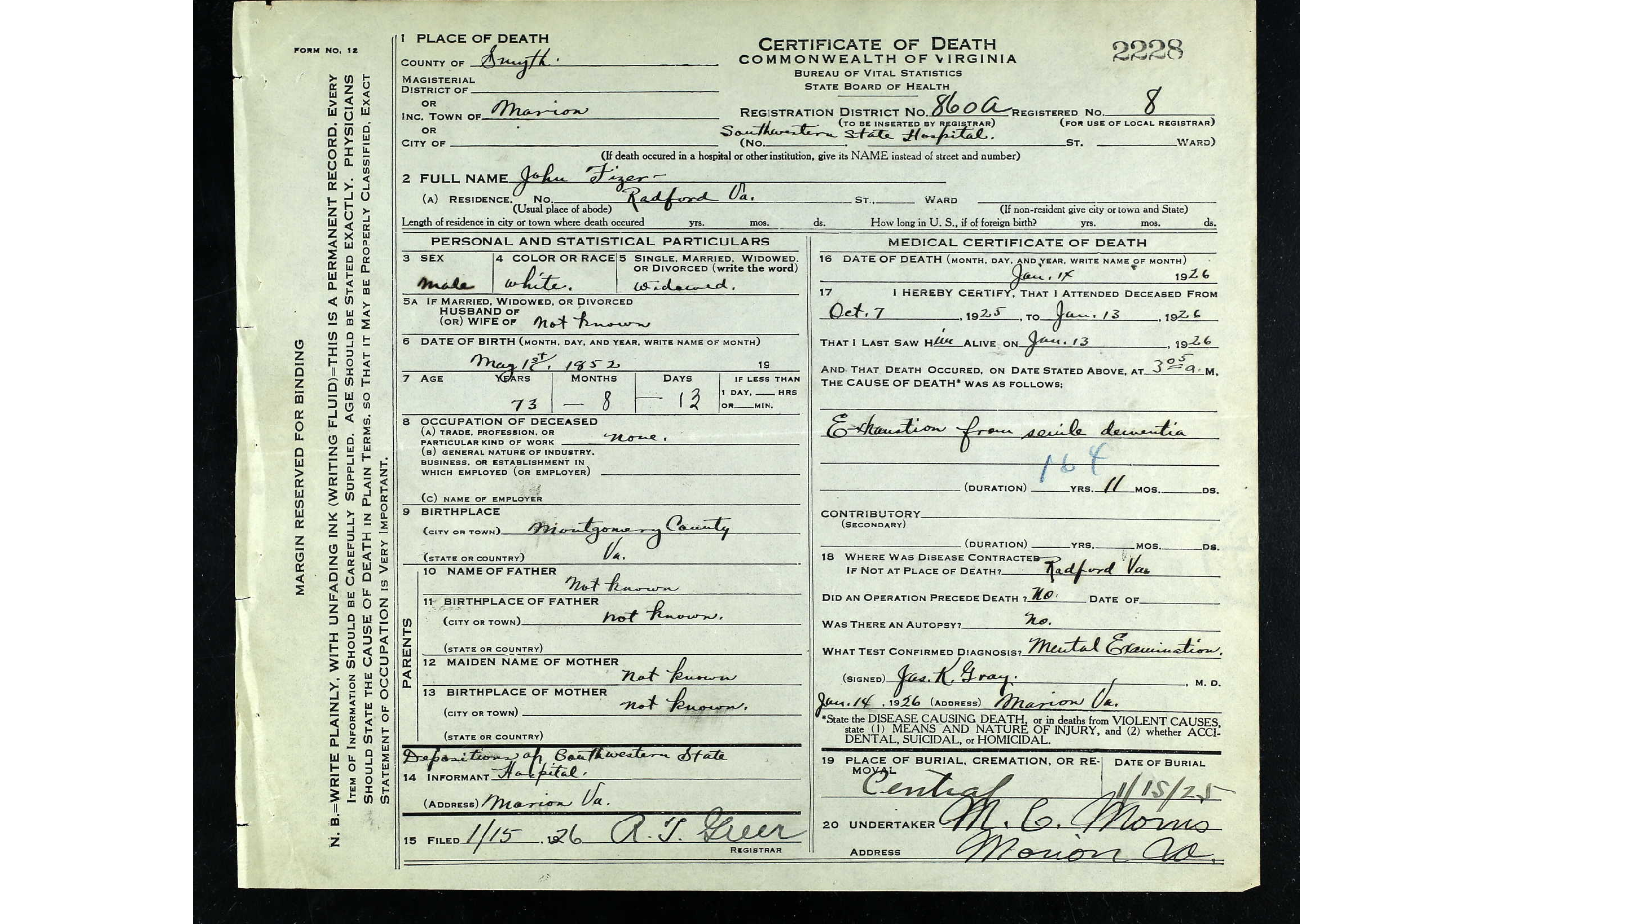 FORM No. 12
MARGIN RESERVED FOR BINDING
N. B.=WRITE PLAINLY, WITH UNFADING INK (WRITING FLUID)=THIS IS A PERMANENT RECORD. EVERY
ITEM OF INFORMATION SHOULD BE CAREFULLY SUPPLIED. AGE SHOULD BE STATED EXACTLY. PHYSICIANS
SHOULD STATE THE CAUSE OF DEATH IN PLAIN TERMS, SO THAT IT MAY BE PROPERLY CLASSIFIED. EXACT
STATEMENT OF OCCUPATION IS VERY IMPORTANT.
CERTIFICATE OF DEATH
COMMONWEALTH OF VIRGINIA
BUREAU OF VITAL STATISTICS
STATE BOARD OF HEALTH
2228
1 PLACE OF DEATH
COUNTY OF Smyth.
MAGISTERIAL
DISTRICT OF
OR
INC. TOWN OF Marion
OR
CITY OF
REGISTRATION DISTRICT No. 860A REGISTERED No. 8
(TO BE INSERTED BY REGISTRAR) (FOR USE OF LOCAL REGISTRAR)
Southwestern State Hospital.
(No. ST. WARD)
(If death occured in a hospital or other institution, give its NAME instead of street and number)
2 FULL NAME John Fizer
(A) RESIDENCE. No. Radford Va. ST., WARD
(Usual place of abode) (If non-resident give city or town and State)
Length of residence in city or town where death occured yrs. mos. ds. How long in U. S., if of foreign birth? yrs. mos. ds.
PERSONAL AND STATISTICAL PARTICULARS
3 SEX
male
4 COLOR OR RACE
white.
5 SINGLE, MARRIED, WIDOWED,
OR DIVORCED (write the word)
widowed.
5A IF MARRIED, WIDOWED, OR DIVORCED
HUSBAND OF
(OR) WIFE OF not known
6 DATE OF BIRTH (MONTH, DAY, AND YEAR, WRITE NAME OF MONTH)
May 1st, 1852 19
7 AGE YEARS MONTHS DAYS
73 — 8 — 13
IF LESS THAN
1 DAY, HRS
OR MIN.
8 OCCUPATION OF DECEASED
(A) TRADE, PROFESSION, OR
PARTICULAR KIND OF WORK none.
(B) GENERAL NATURE OF INDUSTRY,
BUSINESS, OR ESTABLISHMENT IN
WHICH EMPLOYED (OR EMPLOYER)
(C) NAME OF EMPLOYER
9 BIRTHPLACE
(CITY OR TOWN) Montgomery County
(STATE OR COUNTRY) Va.
PARENTS
10 NAME OF FATHER
Not known
11 BIRTHPLACE OF FATHER
(CITY OR TOWN) not known.
(STATE OR COUNTRY)
12 MAIDEN NAME OF MOTHER
not known
13 BIRTHPLACE OF MOTHER
(CITY OR TOWN) not known.
(STATE OR COUNTRY)
Depositions of Southwestern State
14 INFORMANT Hospital.
(ADDRESS) Marion Va.
15 FILED 1/15, 1926 R. T. Greer
REGISTRAR
MEDICAL CERTIFICATE OF DEATH
16 DATE OF DEATH (MONTH, DAY, AND YEAR, WRITE NAME OF MONTH)
Jan. 14 1926
17 I HEREBY CERTIFY, THAT I ATTENDED DECEASED FROM
Oct. 7, 1925, TO Jan. 13, 1926
THAT I LAST SAW Him ALIVE ON Jan. 13, 1926
AND THAT DEATH OCCURED, ON DATE STATED ABOVE, AT 3 05 a. M.
THE CAUSE OF DEATH* WAS AS FOLLOWS:
Exhaustion from senile dementia
164
(DURATION) YRS. 11 MOS. DS.
CONTRIBUTORY
(SECONDARY)
(DURATION) YRS. MOS. DS.
18 WHERE WAS DISEASE CONTRACTED
IF NOT AT PLACE OF DEATH? Radford Va.
DID AN OPERATION PRECEDE DEATH? No. DATE OF
WAS THERE AN AUTOPSY? no.
WHAT TEST CONFIRMED DIAGNOSIS? Mental Examination.
(SIGNED) Jas. K. Gray. , M. D.
Jan. 14, 1926 (ADDRESS) Marion Va.
*State the DISEASE CAUSING DEATH, or in deaths from VIOLENT CAUSES,
state (1) MEANS AND NATURE OF INJURY, and (2) whether ACCI-
DENTAL, SUICIDAL, or HOMICIDAL.
19 PLACE OF BURIAL, CREMATION, OR RE-
MOVAL
Central
DATE OF BURIAL
1/15/25
20 UNDERTAKER M. C. Morris
ADDRESS Marion Va.